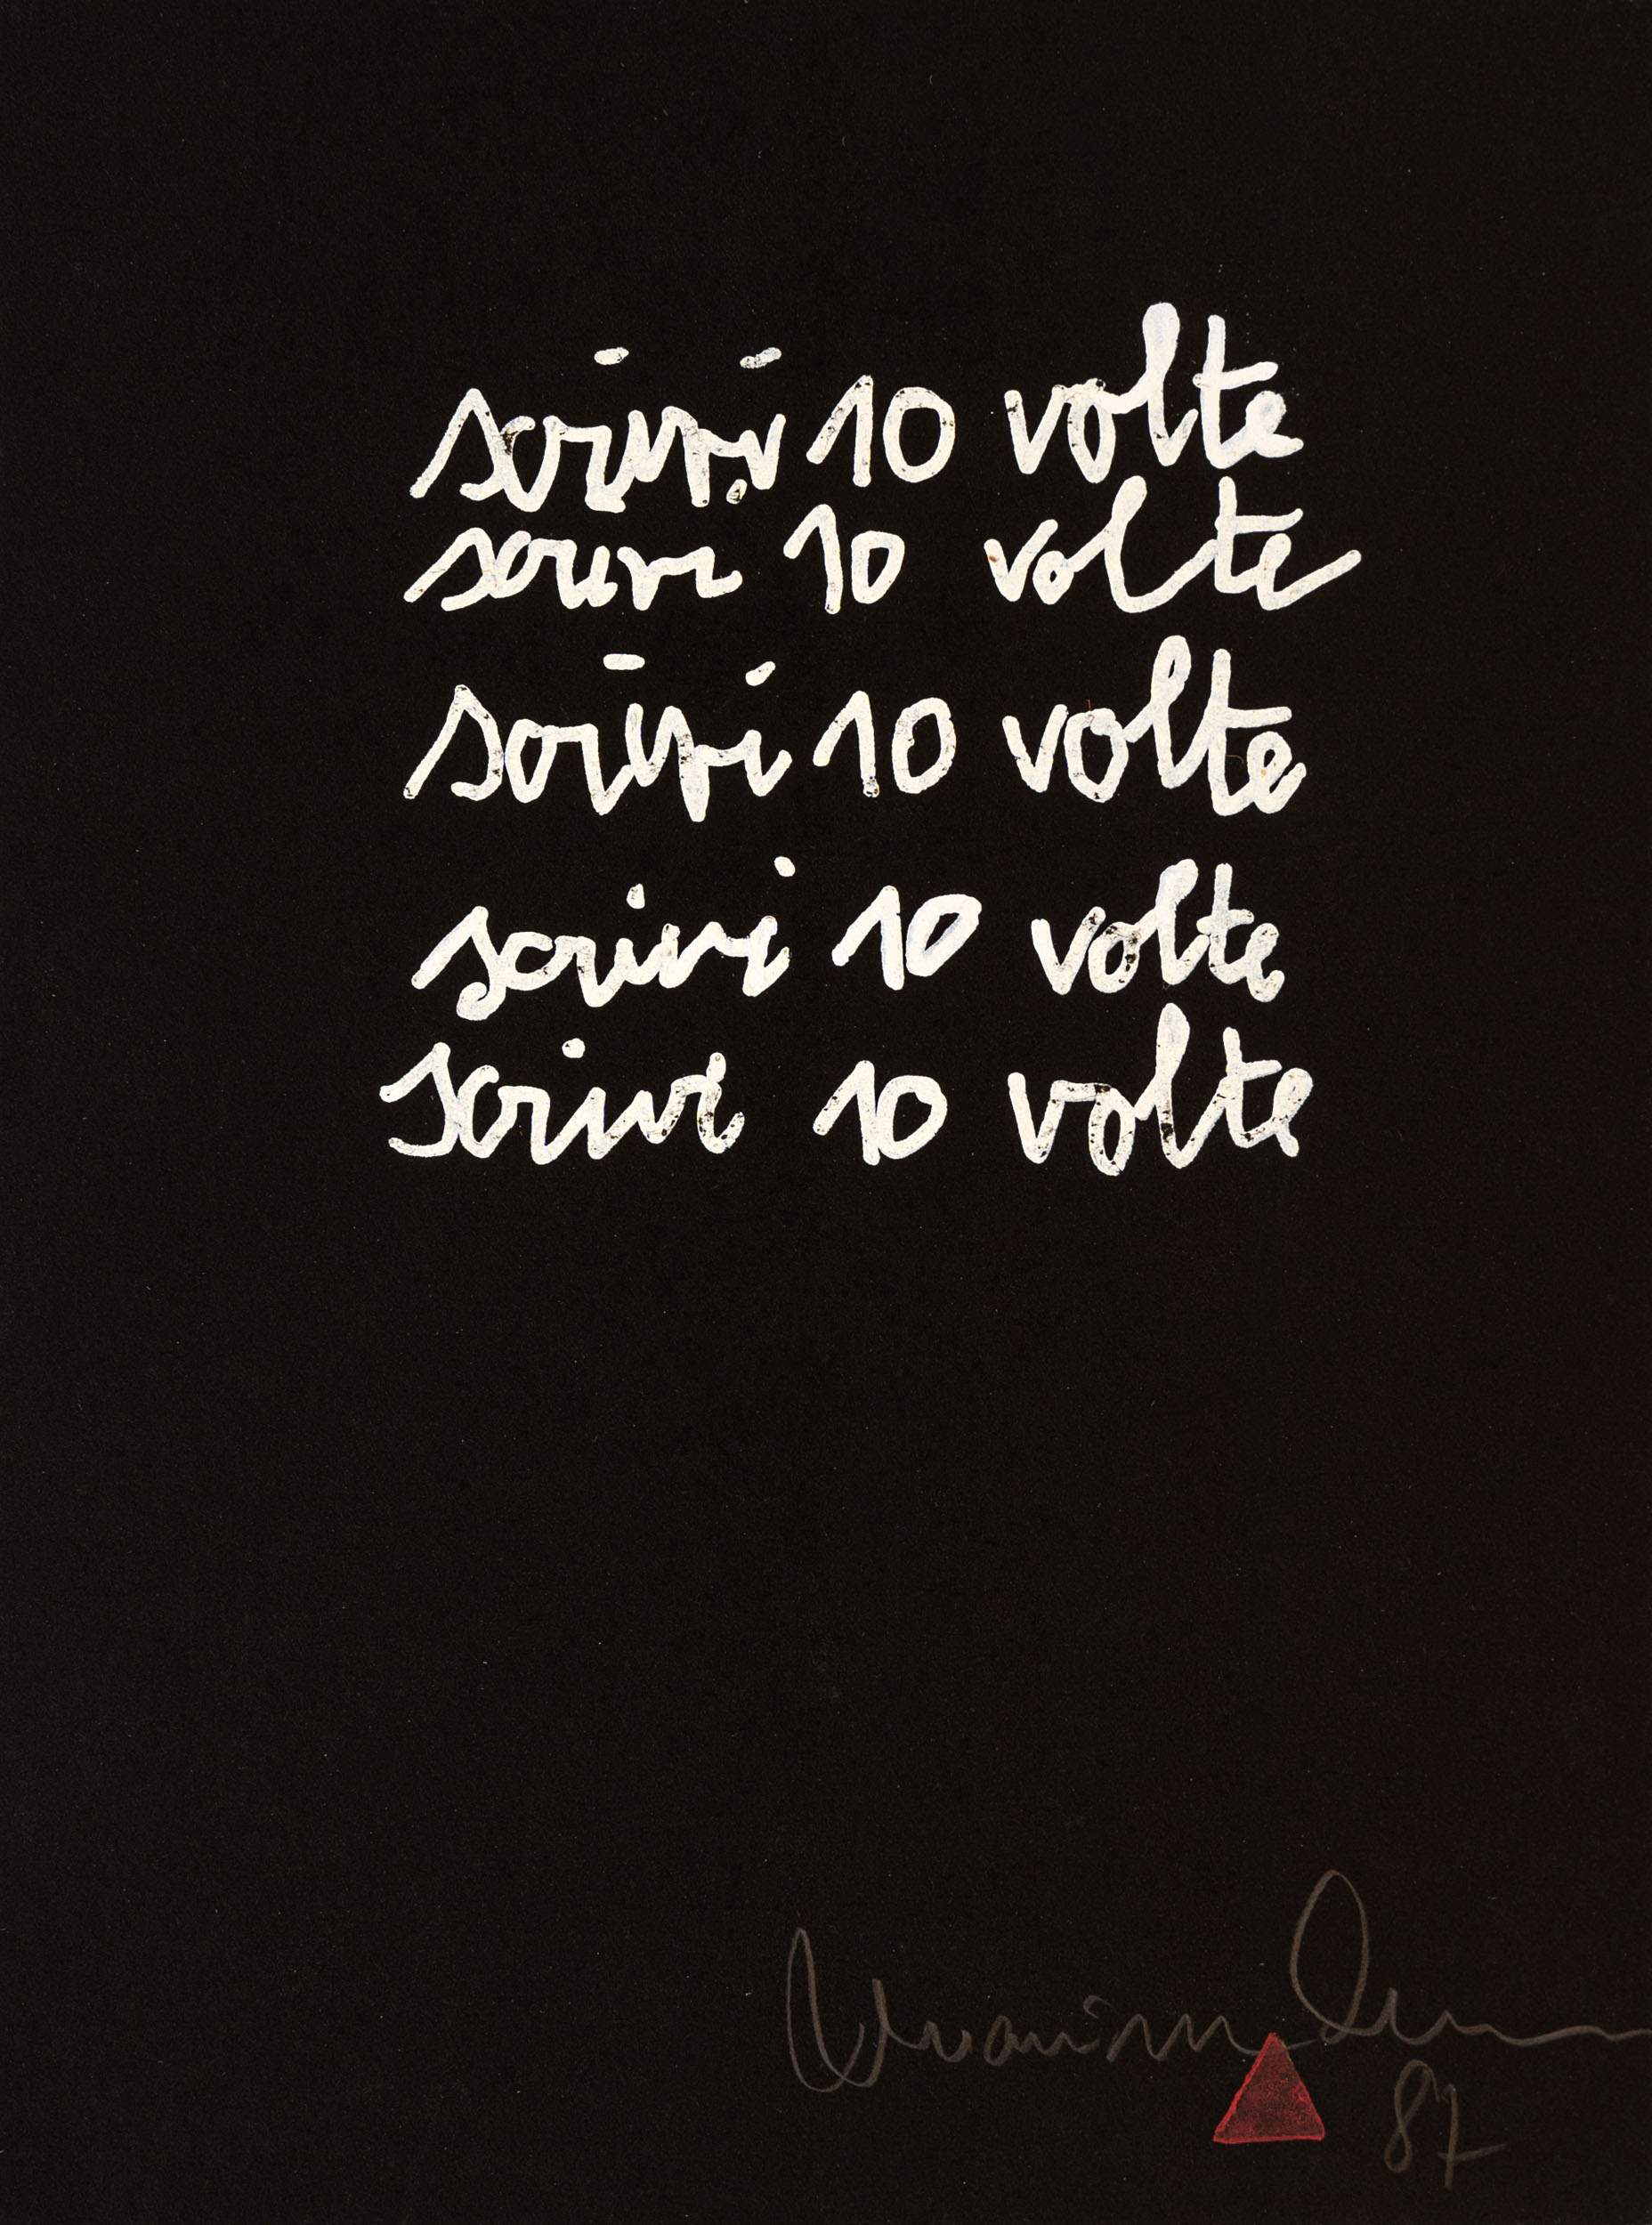 scrivi 10 volte
scrivi 10 volte
scrivi 10 volte
scrivi 10 volte
scrivi 10 volte
87